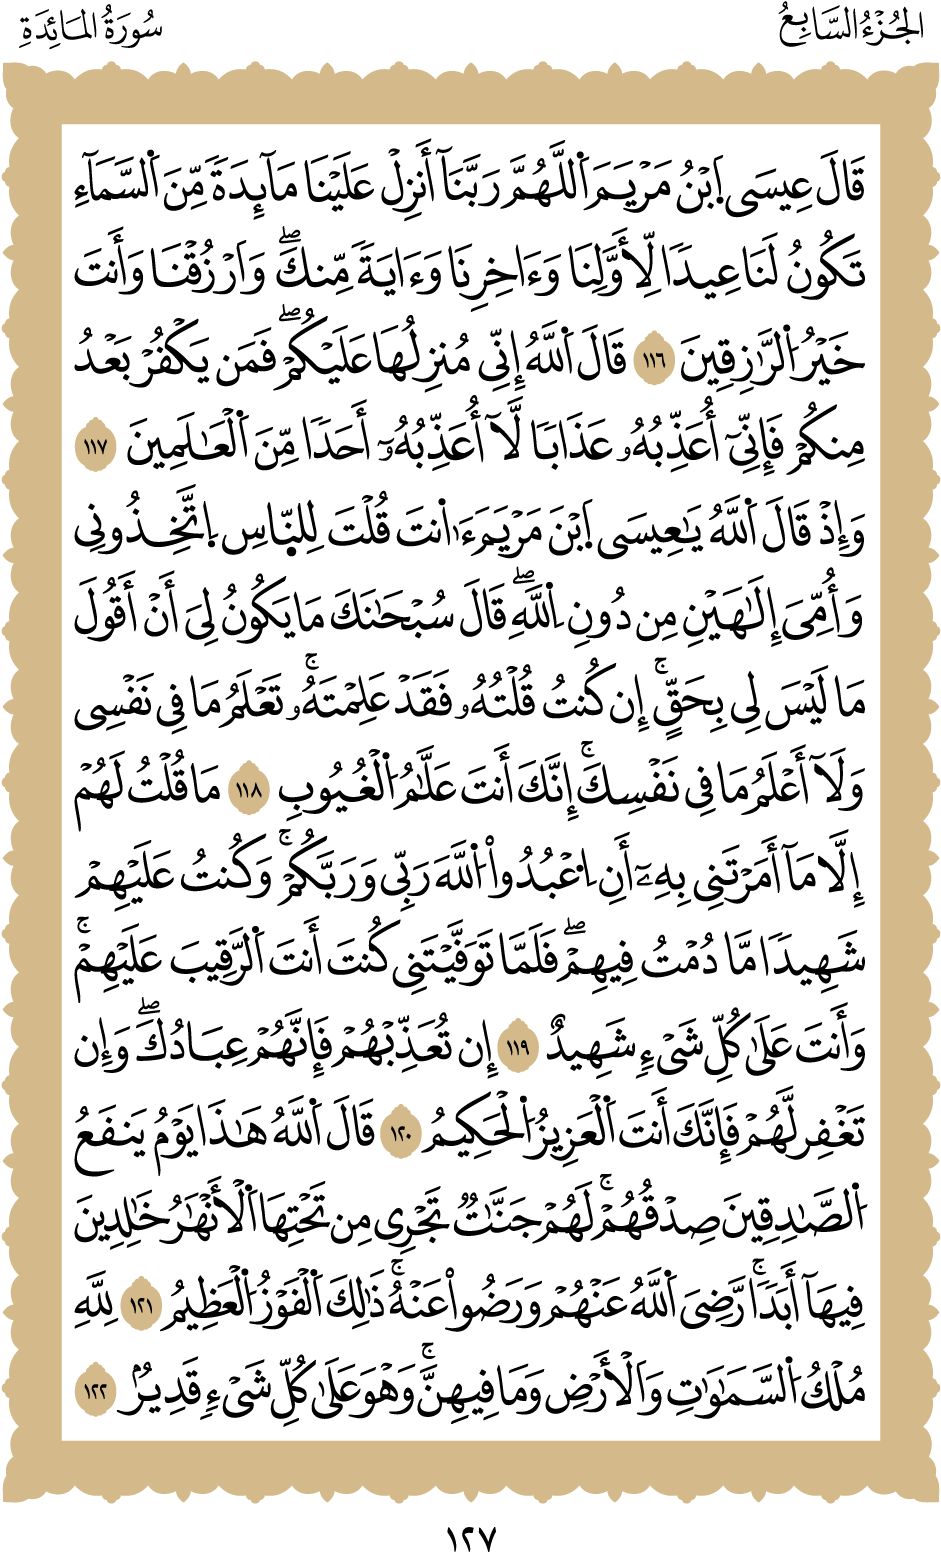 الجُزْءُ السَّابِعُ
سُورَةُ المَائِدَةِ
قَالَ عِيسَى اَبْنُ مَرْيَمَ اَللَّهُمَّ رَبَّنَآ أَنزِلْ عَلَيْنَا مَآئِدَةً مِّنَ اَلسَّمَآءِ
تَكُونُ لَنَا عِيدًا لِّأَوَّلِنَا وَءَاخِرِنَا وَءَايَةً مِّنكَۖ وَارْزُقْنَا وَأَنتَ
خَيْرُ اُلرَّٰزِقِينَ ١١٦ قَالَ اَللَّهُ إِنِّي مُنزِلُهَا عَلَيْكُمْۖ فَمَن يَكْفُرْ بَعْدُ
مِنكُمْ فَإِنِّيٓ أُعَذِّبُهُۥ عَذَابًا لَّآ أُعَذِّبُهُۥٓ أَحَدًا مِّنَ اَلْعَٰلَمِينَ ١١٧
وَإِذْ قَالَ اَللَّهُ يَٰعِيسَى اَبْنَ مَرْيَمَ ءَاٰنتَ قُلْتَ لِلنَّاسِ اِتَّخِذُونِي
وَأُمِّيَ إِلَٰهَيْنِ مِن دُونِ اِللَّهِۖ قَالَ سُبْحَٰنَكَ مَا يَكُونُ لِيَ أَنْ أَقُولَ
مَا لَيْسَ لِي بِحَقٍّۚ إِن كُنتُ قُلْتُهُۥ فَقَدْ عَلِمْتَهُۥۚ تَعْلَمُ مَا فِي نَفْسِي
وَلَآ أَعْلَمُ مَا فِي نَفْسِكَۚ إِنَّكَ أَنتَ عَلَّٰمُ اُلْغُيُوبِ ١١٨ مَا قُلْتُ لَهُمْ
إِلَّا مَآ أَمَرْتَنِي بِهِۦٓ أَنِ اِعْبُدُواْ اُللَّهَ رَبِّي وَرَبَّكُمْۚ وَكُنتُ عَلَيْهِمْ
شَهِيدًا مَّا دُمْتُ فِيهِمْۖ فَلَمَّا تَوَفَّيْتَنِي كُنتَ أَنتَ اَلرَّقِيبَ عَلَيْهِمْۚ
وَأَنتَ عَلَىٰ كُلِّ شَيْءٍ شَهِيدٌ ١١٩ إِن تُعَذِّبْهُمْ فَإِنَّهُمْ عِبَادُكَۖ وَإِن
تَغْفِرْ لَهُمْ فَإِنَّكَ أَنتَ اَلْعَزِيزُ اُلْحَكِيمُ ١٢٠ قَالَ اَللَّهُ هَٰذَا يَوْمُ يَنفَعُ
اُلصَّٰدِقِينَ صِدْقُهُمْۚ لَهُمْ جَنَّٰتٌ تَجْرِي مِن تَحْتِهَا اَلْأَنْهَٰرُ خَٰلِدِينَ
فِيهَآ أَبَدًاۚ رَّضِيَ اَللَّهُ عَنْهُمْ وَرَضُواْ عَنْهُۚ ذَٰلِكَ اَلْفَوْزُ اُلْعَظِيمُ ١٢١ لِلَّهِ
مُلْكُ اُلسَّمَٰوَٰتِ وَالْأَرْضِ وَمَا فِيهِنَّۚ وَهُوَ عَلَىٰ كُلِّ شَيْءٍ قَدِيرٌۢ ١٢٢
١٢٧